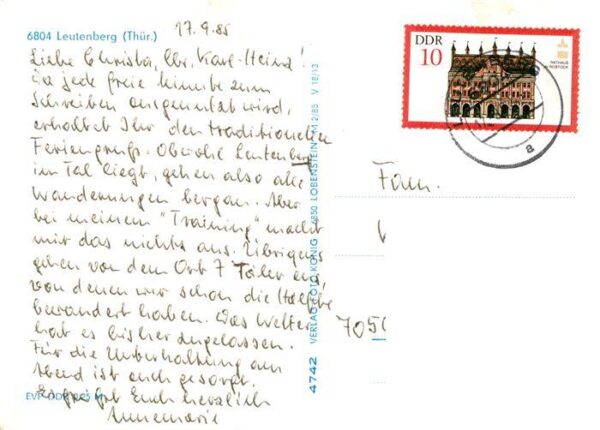 6804 Leutenberg (Thür.)
17.9.85
Liebe Christa, lbr. Karl-Heinz!
Da jede freie Minute zum
Schreiben ausgenutzt wird,
erhaltet Ihr den traditionellen
Feriengruß. Obwohl Leutenberg
im Tal liegt, gehen also alle
Wanderungen bergan. Aber
bei meinem "Training" macht
mir das nichts aus. Übrigens
gehen von dem Ort 7 Täler aus,
von denen wir schon die Hälfte
bewandert haben. Das Wetter
hat es bisher zugelassen.
Für die Unterhaltung am
Abend ist auch gesorgt.
Es grüßt Euch herzlich
Annemarie
EVP DDR 0,25 M
4742 VERLAG FOTO KÖNIG 6850 LOBENSTEIN M 2/85 V 18/13
DDR
10
RATHAUS
ROSTOCK
a
Fam.
705